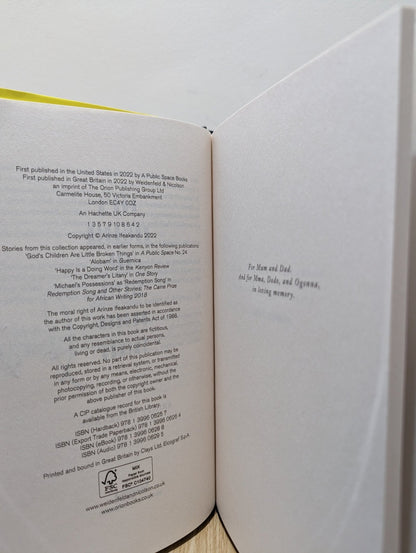 First published in the United States in 2022 by A Public Space Books
First published in Great Britain in 2022 by Weidenfeld & Nicolson
an imprint of The Orion Publishing Group Ltd
Carmelite House, 50 Victoria Embankment
London EC4Y 0DZ
An Hachette UK Company
1 3 5 7 9 10 8 6 4 2
Copyright © Arinze Ifeakandu 2022
Stories from this collection appeared, in earlier forms, in the following publications:
'God's Children Are Little Broken Things' in A Public Space No. 24
'Alobam' in Guernica
'Happy Is a Doing Word' in the Kenyon Review
'The Dreamer's Litany' in One Story
'Michael's Possessions' as 'Redemption Song' in
Redemption Song and Other Stories: The Caine Prize
for African Writing 2018
The moral right of Arinze Ifeakandu to be identified as
the author of this work has been asserted in accordance
with the Copyright, Designs and Patents Act of 1988.
All the characters in this book are fictitious,
and any resemblance to actual persons,
living or dead, is purely coincidental.
All rights reserved. No part of this publication may be
reproduced, stored in a retrieval system, or transmitted
in any form or by any means, electronic, mechanical,
photocopying, recording, or otherwise, without the
prior permission of both the copyright owner and the
above publisher of this book.
A CIP catalogue record for this book is
available from the British Library.
ISBN (Hardback) 978 1 3996 0625 7
ISBN (Export Trade Paperback) 978 1 3996 0626 4
ISBN (eBook) 978 1 3996 0628 8
ISBN (Audio) 978 1 3996 0629 5
Printed and bound in Great Britain by Clays Ltd, Elcograf S.p.A.
FSC
MIX
Paper from
responsible sources
FSC® C104740
www.weidenfeldandnicolson.co.uk
www.orionbooks.co.uk
For Mum and Dad.
And for Mma, Dede, and Ogonna,
in loving memory.